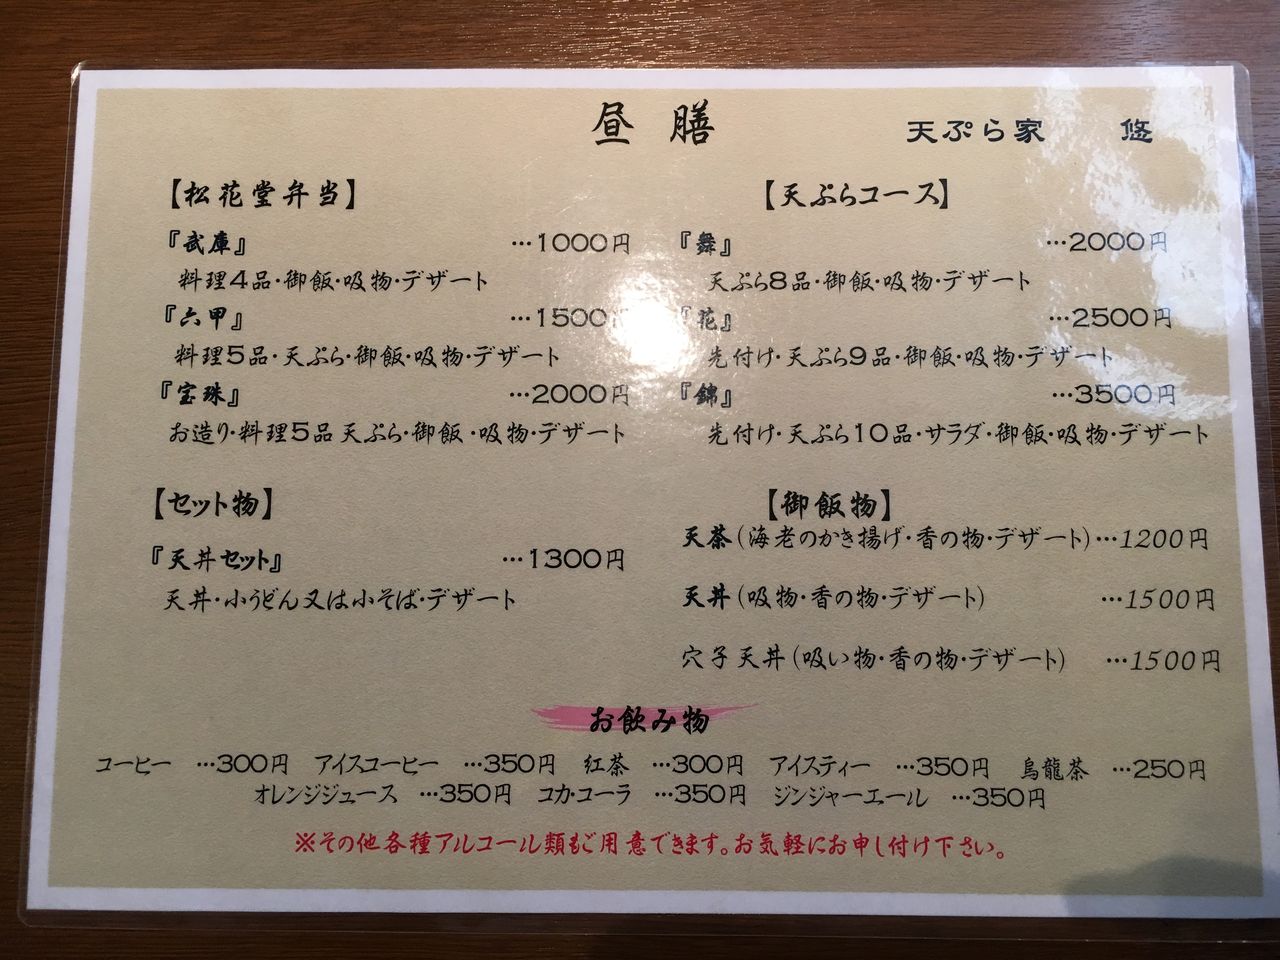 昼膳
天ぷら家 悠
【松花堂弁当】
『武庫』 …1000円
料理4品・御飯・吸物・デザート
『六甲』 …1500
料理5品・天ぷら・御飯・吸物・デザート
『宝珠』 …2000円
お造り・料理5品 天ぷら・御飯・吸物・デザート
【セット物】
『天丼セット』 …1300円
天丼・小うどん又は小そば・デザート
【天ぷらコース】
『舞』 …2000円
天ぷら8品・御飯・吸物・デザート
『花』 …2500円
先付け・天ぷら9品・御飯・吸物・デザート
『錦』 …3500円
先付け・天ぷら10品・サラダ・御飯・吸物・デザート
【御飯物】
天茶(海老のかき揚げ・香の物・デザート)…1200円
天丼(吸物・香の物・デザート) …1500円
穴子天丼(吸い物・香の物・デザート) …1500円
お飲み物
コーヒー …300円 アイスコーヒー …350円 紅茶 …300円 アイスティー …350円 烏龍茶 …250円
オレンジジュース …350円 コカ・コーラ …350円 ジンジャーエール …350円
※その他各種アルコール類もご用意できます。お気軽にお申し付け下さい。